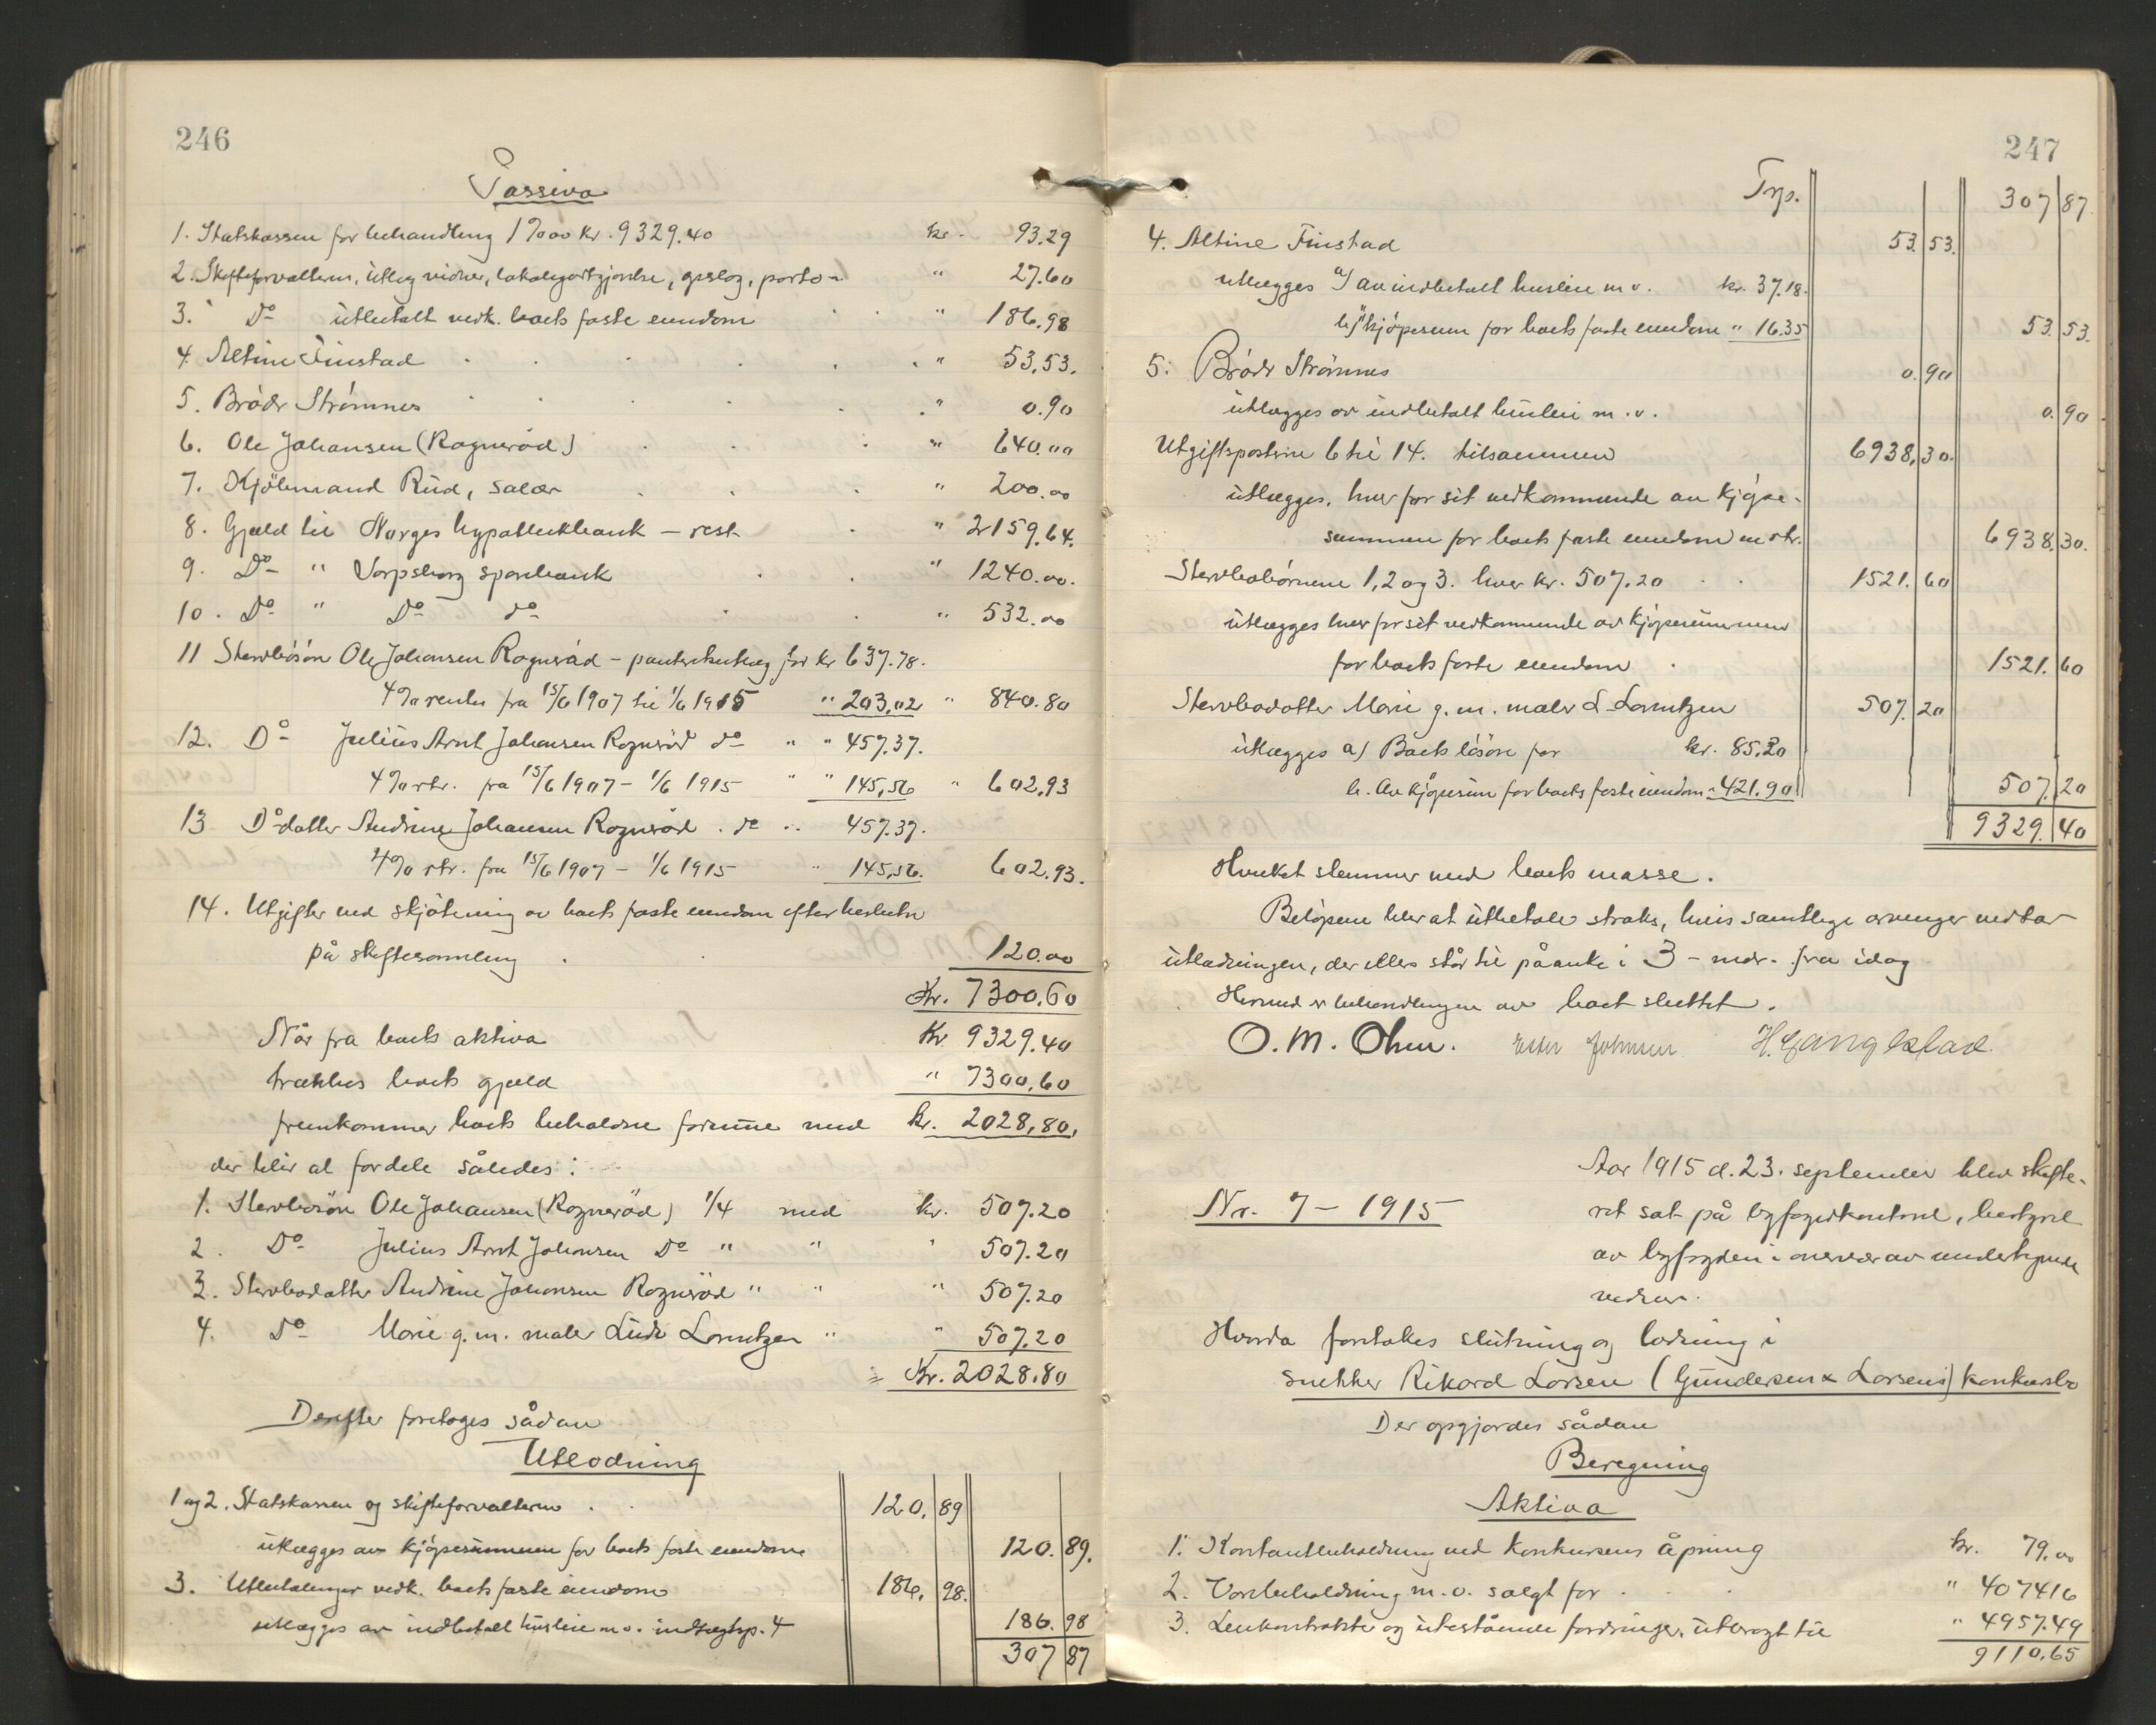 246
Passiva
1. Statskassen for behandling 1% av kr. 9329.40 kr. 93.29
2. Skifteforvalteren, utlæg vidner, lokalgodtgjørelse, porto " 27.60
3. Do utbetalt vedk. boets faste eiendom " 186.98
4. Altine Finstad " 53.53.
5. Brødr Strömnes " 0.90
6. Ole Johansen (Rognerød) " 640.00
7. Kjölmand Rud, salær " 200.00
8. Gjæld til Norges hypotekbank – rest " 2159.64.
9. Do " Sarpsborg sparebank " 1240.00.
10. Do " Do do " 532.00
11 Stervbosön Ole Johansen Rognerød – panterets utlæg for kr 637.78.
4% renter fra 15/6 1907 til 1/6 1915 " 203,02 " 840.80
12. Do Julius Arnt Johansen Rognerød do " " 457.37.
4% rtr. fra 15/6 1907 – 1/6 1915 " " 145,56 " 602,93
13 Do datter Andrine Johansen Rognerød. do " 457.37.
4% rtr. fra 15/6 1907 – 1/6 1915 " 145,56. 602.93.
14. Utgifter ved skjötning av boets faste eiendom efter beslutn
på skiftesamling 120.00
Kr. 7300.60
Når fra boets aktiva Kr 9329.40
trækkes boets gjæld " 7300.60
fremkommer boets beholdne formue med kr. 2028,80,
der blir at fordele således:
1. Stervbosön Ole Johansen (Rognerød) 1/4 med kr. 507.20
2. Do Julius Arnt Johansen Do " " " 507.20
3. Stervbodatter Andrine Johansen Rognerød " " " 507.20
4. Do Marie g.m. maler Ludv Lorentzen " " 507.20
= Kr. 2028.80
Derefter foretoges sådan
Utlodning
1 og 2. Statskassen og skifteforvalteren 120.89
utlægges av kjøpesummen for boets faste eiendom 120.89.
3. Utbetalinger vedk. boets faste eiendom 186.98.
utlægges av indbetalt husleie m.v. indtægtsp. 4 186.98
307 87
247
Trsp. 307 87
4. Altine Finstad 53.53.
utlægges a) av indbetalt husleie m.v. kr. 37.18.
b) " kjöpesum for boets faste eiendom " 16.35 53.53.
5. Brødr Strömnes 0.90
utlægges av indbetalt husleie m.v. 0.90
Utgiftsposterne 6 til 14. tilsammen 6938,30.
utlægges, hver for sit vedkommende av kjöpe-
summen for boets faste eiendom m rtr. 6938,30.
Stervbobörnene 1, 2 og 3. hver kr. 507.20 1521.60
utlægges hver for sit vedkommende av kjöpesummen
for boets faste eiendom 1521.60
Stervbodatter Marie g.m. maler L. Lorentzen 507.20
utlægges a) Boets lösöre for kr. 85.30
b. Av kjöpesum for boets faste eiendom " 421.90 507.20
9329.40
Hvilket stemmer med boets masse.
Belöpene blir at utbetale straks, hvis samtlige arvinger vedtar
utlodningen, der ellers står til påanke i 3 – mdr. fra idag
Hermed er behandlingen av boet sluttet.
O. M. Ohm. Ester Johnsen H. Gangestad.
Nr. 7 – 1915
Aar 1915 d. 23. september blev skifte-
ret sat på byfogedkontoret, bestyret
av byfogden i overvær av undertegnede
vidner.
Hvorda foretokes slutning og lodning i
snekker Rikard Larsen (Gundersen & Larsens) konkursbo
Der opgjordes sådan
Beregning
Aktiva
1. Kontantbeholdning ved konkursens åpning kr. 79.00
2. Varebeholdning m.v. solgt for " 4074 16
3. Leiekontrakter og utestående fordringer, utbragt til " 4957.49
9110.65